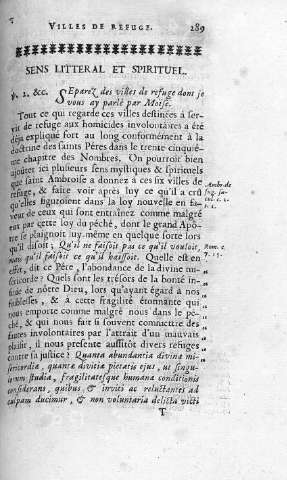 VILLES DE REFUGE. 289
SENS LITTERAL ET SPIRITUEL.
℣. 2. &c. SEparez des villes de refuge dont je
vous ay parlé par Moïse.
Tout ce qui regarde ces villes destinées à ser-
vir de refuge aux homicides involontaires a été
déja expliqué fort au long conformément à la
doctrine des saints Péres dans le trente cinquié-
me chapitre des Nombres. On pourroit bien
ajoûter ici plusieurs sens mystiques & spirituels
que saint Ambroise a donnez à ces six villes de
refuge, & faire voir après luy ce qu'il a crû
qu'elles figuroient dans la loy nouvelle en fa-
veur de ceux qui sont entraînez comme malgré
eux par cette loy du péché, dont le grand Apô-
tre se plaignoit luy même en quelque sorte lors
qu'il disoit, Qu'il ne faisoit pas ce qu'il vouloit,
mais qu'il faisoit ce qu'il haïssoit. Quelle est en
effet, dit ce Pére, l'abondance de la divine mi-
sericorde? Quels sont les trésors de la bonté in-
finie de nôtre Dieu, lors qu'ayant égard à nos
foiblesses, & à cette fragilité étonnante qui
nous emporte comme malgré nous dans le pe-
ché, & qui nous fait si souvent commettre des
fautes involontaires par l'attrait d'un mauvais
plaisir, il nous présente aussitôt divers refuges
contre sa justice? Quanta abundantia divina mi-
sericordia, quanta divitiæ pietatis ejus, ut singu-
lorum studia, fragilitatesque humanæ conditionis
considerans, quibus & inviti ac reluctantes ad
culpam ducimur, & non voluntaria delicta victi
T
Ambr. de
Rom. c.
7. 15.